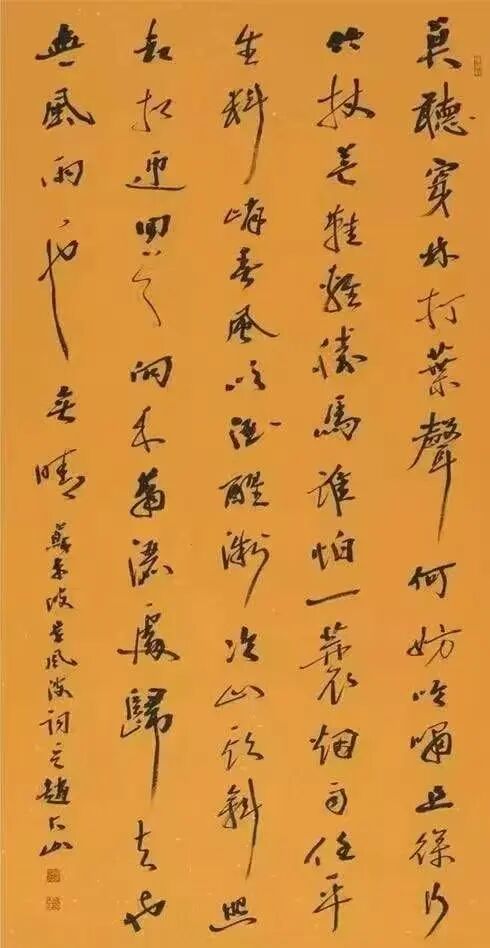 莫聽穿林打葉聲何妨吟嘯且徐行
竹杖芒鞋輕勝馬誰怕一蓑烟雨任平
生料峭春風吹酒醒微冷山頭斜照
却相迎回首向來蕭灑處歸去也
無風雨也無晴
蘇東坡定風波詞 趙山